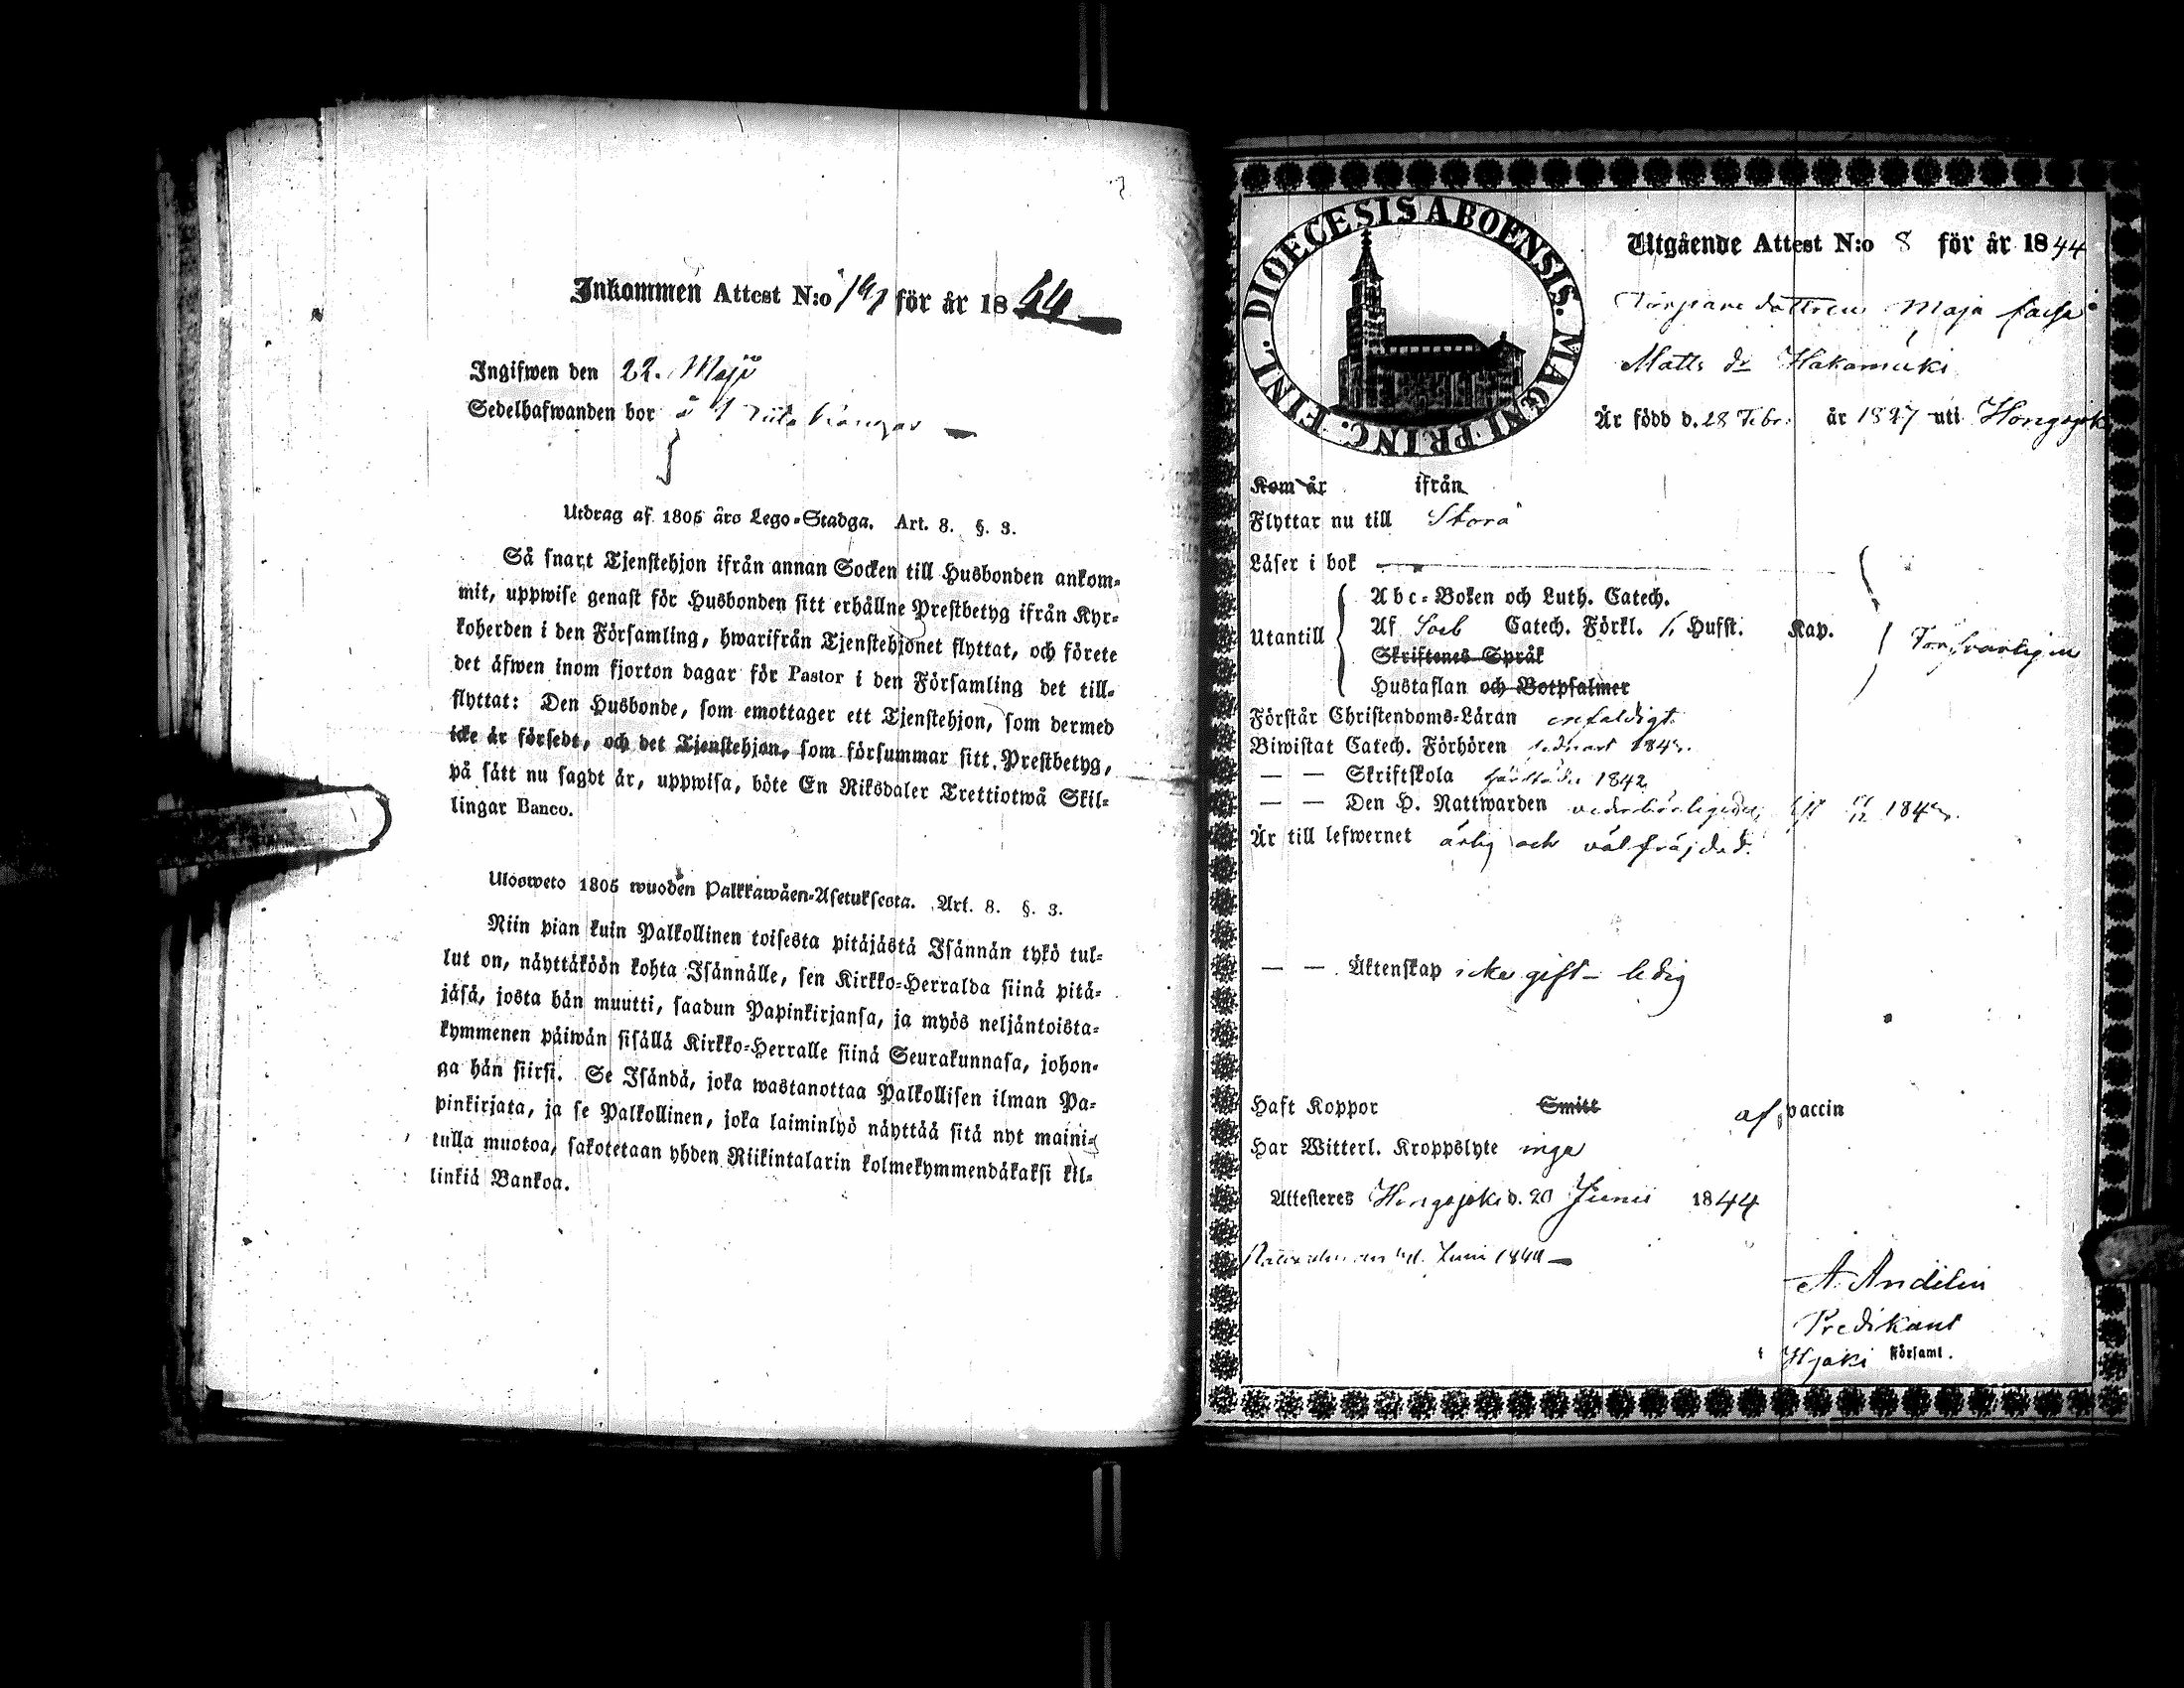 Inkommen Attest N:o 191 för år 1844
Ingifwen den 22. Maji
Sedelhafwanden bor å
Utdrag af 1805 års Lego-Stadga. Art. 8. §. 3.
Så snart Tjenstehjon ifrån annan Socken till Husbonden ankom-
mit, uppwise genast för Husbonden sitt erhållne Prestbetyg ifrån Kyr-
koherden i den Församling, hwarifrån Tjenstehjonet flyttat, och förete
det äfwen inom fjorton dagar för Pastor i den Församling det till-
flyttat: Den Husbonde, som emottager ett Tjenstehjon, som dermed
icke är försedt, och det Tjenstehjon, som försummar sitt Prestbetyg,
på sätt nu sagdt är, uppwisa, böte En Riksdaler Trettiotwå Skil-
lingar Banco.
Ulosweto 1805 wuoden Palkkawäen-Asetuksesta. Art. 8. §. 3.
Niin pian kuin Palkollinen toisesta pitäjästä Isännän tykö tul-
lut on, näyttäköön kohta Isännälle, sen Kirkko-Herralda siinä pitä-
jäsä, josta hän muutti, saadun Papinkirjansa, ja myös neljäntoista-
kymmenen päiwän sisällä Kirkko-Herralle siinä Seurakunnasa, johon-
ga hän siirsi. Se Isändä, joka wastanottaa Palkollisen ilman Pa-
pinkirjata, ja se Palkollinen, joka laiminlyö näyttää sitä nyt maini-
tulla muotoa, sakotetaan yhden Riikintalarin kolmekymmendäkaksi kil-
linkiä Bankoa.
DIOECESIS ABOENSIS. MAGNI PRINC. FINL.
Utgående Attest N:o 8 för år 1844
Torpare dottren Maja Caisa
Matts dr Hakamäki
Är född d. 28 Febr. år 1827 uti Hongojoki
Kom år ifrån
Flyttar nu till Storå
Läser i bok
Abc-Boken och Luth. Catech.
Utantill Af Sveb Catech. Förkl. Hufst. Kap. Försvarligen
Skriftenes Språk
Hustaflan och Botpsalmer
Förstår Christendoms-Läran enfaldigt.
Biwistat Catech. Förhören sednast
— — Skriftskola 1842
— — Den H. Nattwarden
Är till lefwernet ärlig och välfräjdad.
— — Äktenskap icke gift – ledig
Haft Koppor Smitt af vaccin
Har Witterl. Kroppslyte inga
Attesteres Hongojoki d. 20 Junii 1844
Juni 1844 —
A. Andelin
Predikant
i Hjoki Församl.